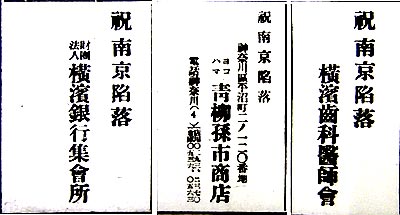 祝南京陥落
横濱齒科醫師會
祝南京陥落
神奈川區平沼町二ノ一二〇番地
ヨコハマ 青柳孫市商店
電話神奈川(4)
祝南京陥落
財團法人 横濱銀行集會所